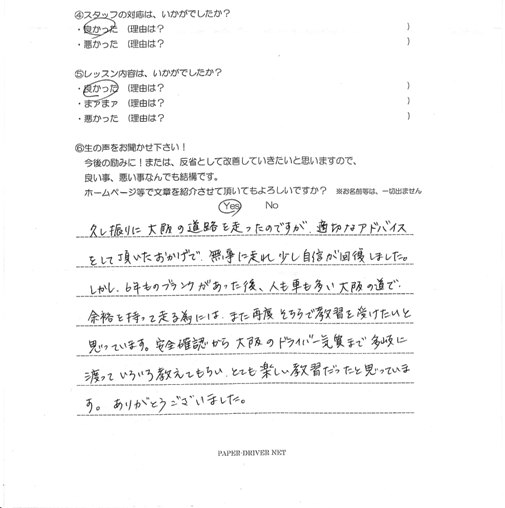 ④スタッフの対応は、いかがでしたか？
・良かった（理由は？　　　）
・悪かった（理由は？　　　）
⑤レッスン内容は、いかがでしたか？
・良かった（理由は？　　　）
・まァまァ（理由は？　　　）
・悪かった（理由は？　　　）
⑥生の声をお聞かせ下さい！
今後の励みに！または、反省として改善していきたいと思いますので、
良い事、悪い事なんでも結構です。
ホームページ等で文章を紹介させて頂いてもよろしいですか？ ※お名前等は、一切出ません
Yes　No
久し振りに大阪の道路を走ったのですが、適切なアドバイス
をして頂いたおかげで、無事に走れ少し自信が回復しました。
しかし、6年ものブランクがあった後、人も車も多い大阪の道で、
余裕を持って走る為には、また再度そちらで教習を受けたいと
思っています。安全確認から大阪のドライバー気質まで多岐に
渡っていろいろ教えてもらい、とても楽しい教習だったと思っていま
す。ありがとうございました。
PAPER-DRIVER NET